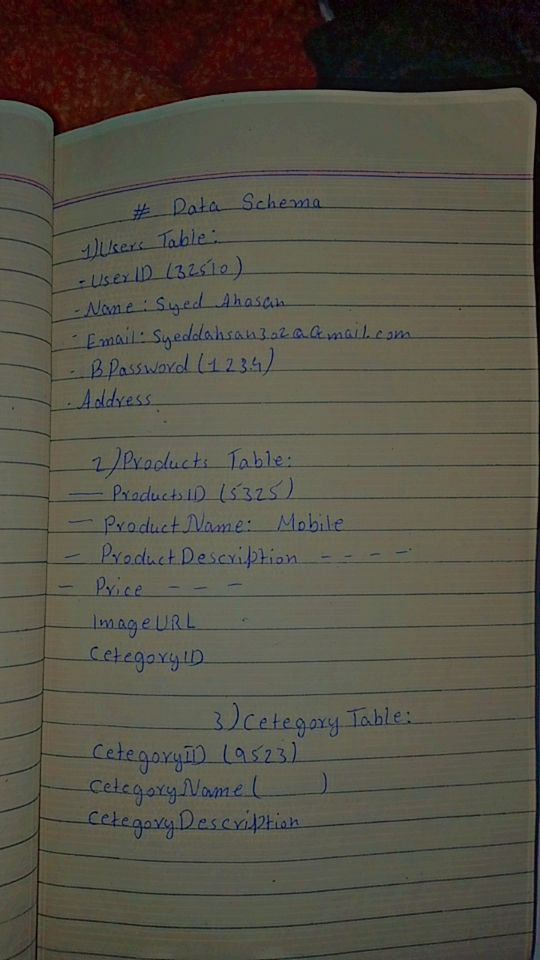 # Data Schema
1) Users Table:
- UserID (32510)
- Name: Syed Ahasan
- Email: Syeddahsan302@Gmail.com
- B Password (1234)
- Address
2) Products Table:
— ProductsID (5325)
— Product Name: Mobile
— Product Description - - - -
— Price - - -
Image URL
CetegoryID
3) Cetegory Table:
CetegoryID (9523)
Cetegory Name ( )
Cetegory Description